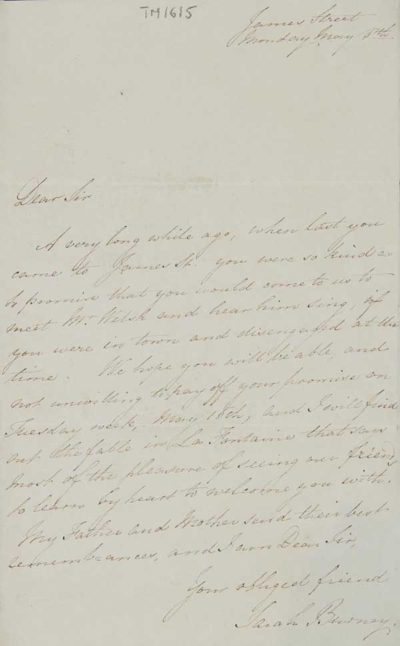 TM1615
James Street
Monday May 5th.
Dear Sir
A very long while ago, when last you
came to James St. you were so kind as
to promise that you would come to us to
meet Mr. Welsh and hear him sing, if
you were in town and disengaged at the
time. We hope you will be able, and
not unwilling to pay off your promise on
Tuesday week, May 13th, and I will find
out the fable in La Fontaine that says
most of the pleasure of seeing our friends
to learn by heart to welcome you with.
My Father and Mother send their best
remembrances, and I am Dear Sir,
Your obliged friend
Sarah Burney.